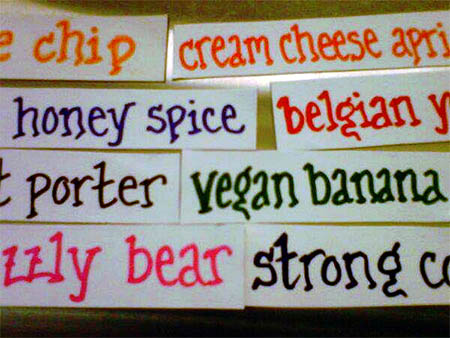 e chip cream cheese apri
honey spice belgian y
t porter vegan banana
zzly bear strong co